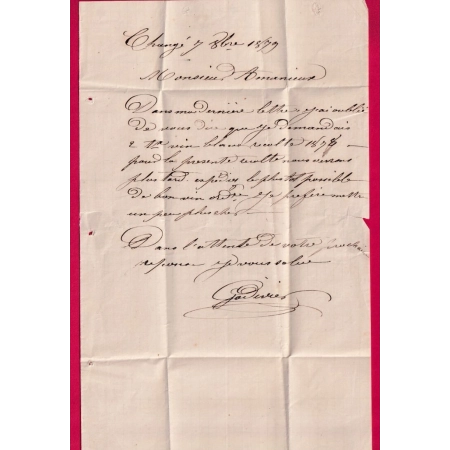 Changé 7 8bre 1879
Monsieur Amanieux
Dans ma derniere lettre j'ai oublié
de vous dire que je demandais
2 Tx vin blanc recolte 1878 —
pour la presente recolte nous verrons
plus tard. expediez le plutot possible
de bon vin ordre je prefere mettre
un peu plus cher —
Dans l'attente de votre prochaine
reponse je vous salue